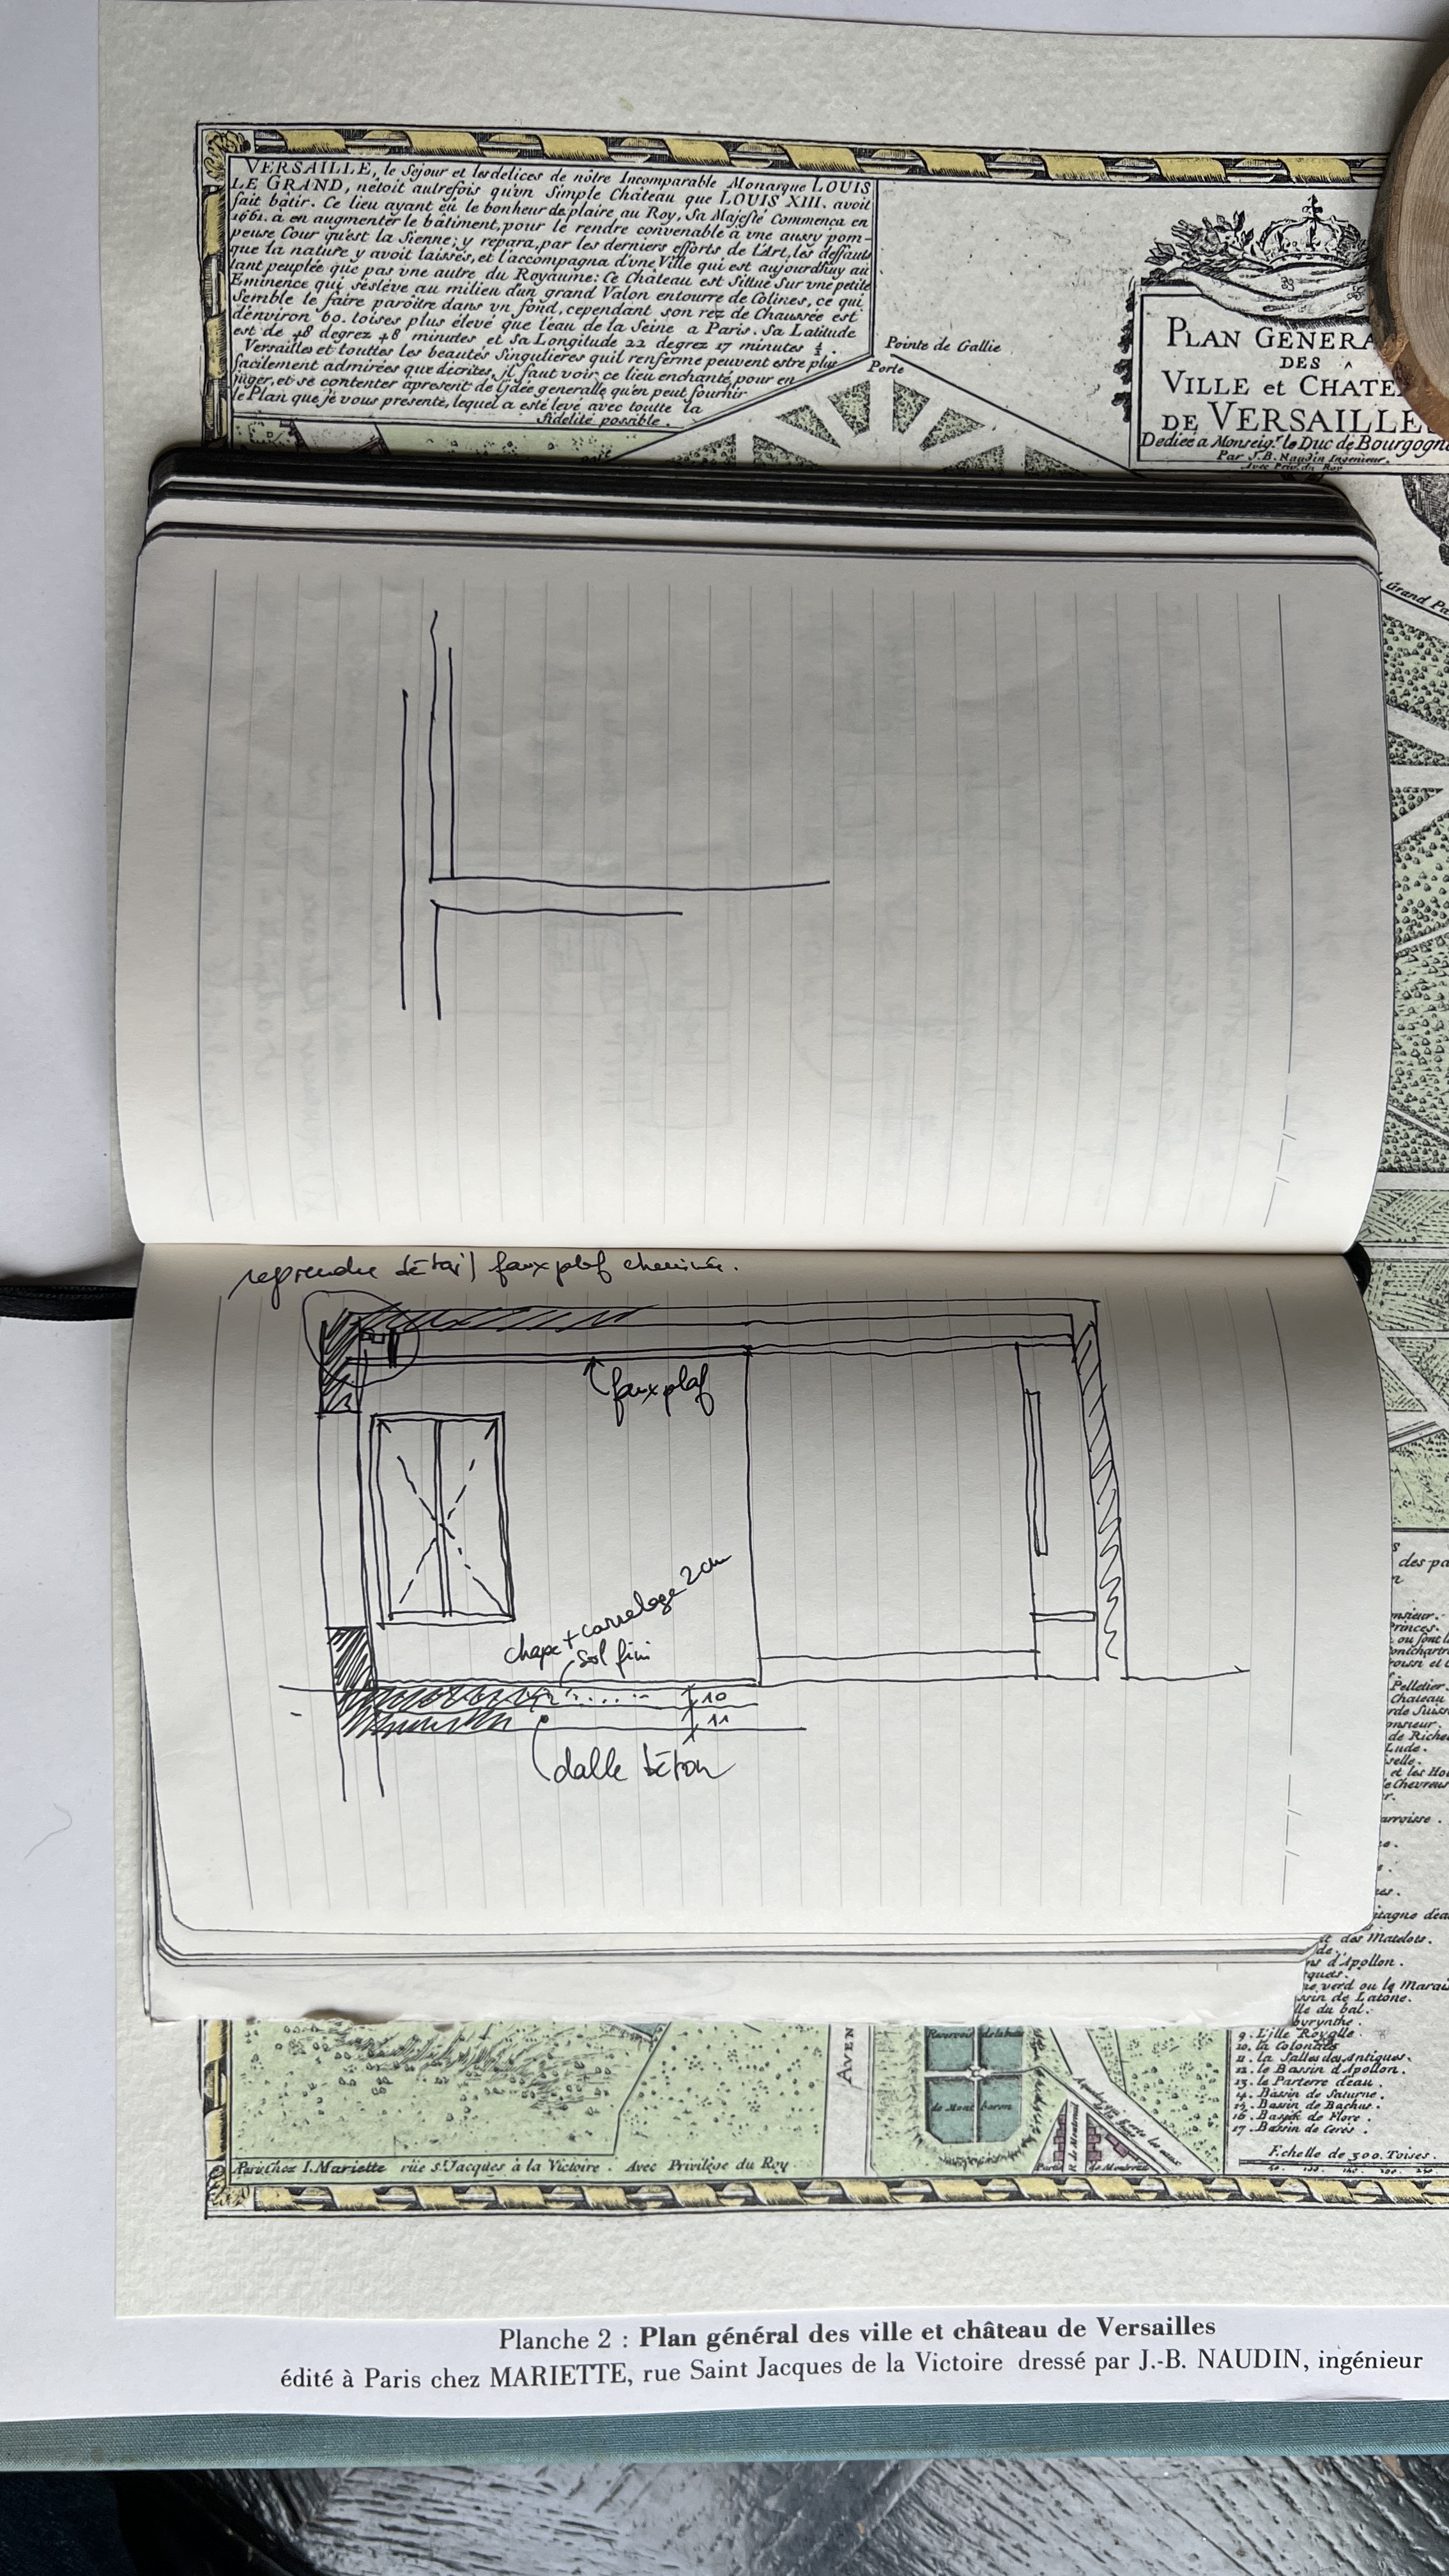 VERSAILLE, le Sejour et les delices de nôtre Incomparable Monarque LOUIS
LE GRAND, nétoit autrefois qu'vn Simple Château que LOUIS XIII. avoit
fait bâtir. Ce lieu ayant eü le bonheur de plaire au Roy, Sa Majesté Commença en
1661. a en augmenter le bâtiment, pour le rendre convenable a vne aussy pom-
peuse Cour qu'est la Sienne; y repara, par les derniers efforts de l'Art, les deffauts
que la nature y avoit laissés, et l'accompagna d'vne Ville qui est aujourdhuy au
tant peuplée que pas vne autre du Royaume: Ce Château est Sittué Sur vne petite
Eminence qui s'esléve au milieu d'un grand Valon entourre de Colines, ce qui
Semble le faire paroître dans vn fond, cependant son rez de Chaussée est
d'environ 60. toises plus élevé que l'eau de la Seine a Paris. Sa Latitude
est de 48 degrez 48 minutes et Sa Longitude 22 degrez 17 minutes
Versailles et touttes les beautés Singulieres quil renferme peuvent estre plus
facilement admirées que décrites, jl faut voir ce lieu enchanté, pour en
juger, et se contenter apresent de l'jdée generalle qu'en peut fournir
le Plan que je vous présente, lequel a esté levé avec toutte la
fidelité possible.
Pointe de Gallie
Porte
PLAN GENERA
DES
VILLE et CHATE
DE VERSAILLE
Dediée a Monseig.r le Duc de Bourgogn
Par J.B. Naudin Ingenieur.
Avec Priv. du Roy
Grand Pa
reprendre détail faux plaf cheminée.
faux plaf
chape + carrelage 2 cm
sol fini
10
11
dalle béton
des pa
Princes.
Pelletier.
Chateau
de Riche
Lude.
et les Ho
e Chevreus
d'Apollon.
verd ou le Marai
de Latone.
du bal.
9. L'Ille Royalle.
10. la Colonade
11. la Salles des Antiques.
12. le Bassin d'Apollon.
13. le Parterre d'eau.
14. Bassin de Saturne.
15. Bassin de Bachus.
16. Bassin de Flore.
17. Bassin de Cerès.
Echelle de 300. Toises.
AVEN
de Mont baron
Paris Chez I. Mariette rüe S.t Jacques à la Victoire. Avec Privilége du Roy
Planche 2 : Plan général des ville et château de Versailles
édité à Paris chez MARIETTE, rue Saint Jacques de la Victoire dressé par J.-B. NAUDIN, ingénieur